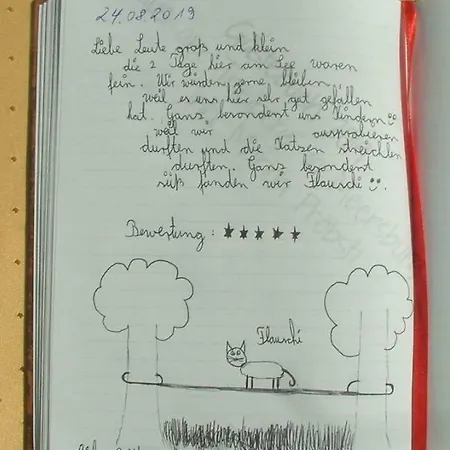 24.08.2019
Liebe Leute groß und klein
die 2 Tage hier am See waren
fein. Wir würden gerne bleiben,
weil es uns hier sehr gut gefallen
hat. Ganz besondent uns Kindern
weil wir ausprobieren
durften und die Katzen streicheln
durften. Ganz besondent
süß fanden wir Flauschi
Bewertung: ★★★★★
Flauschi